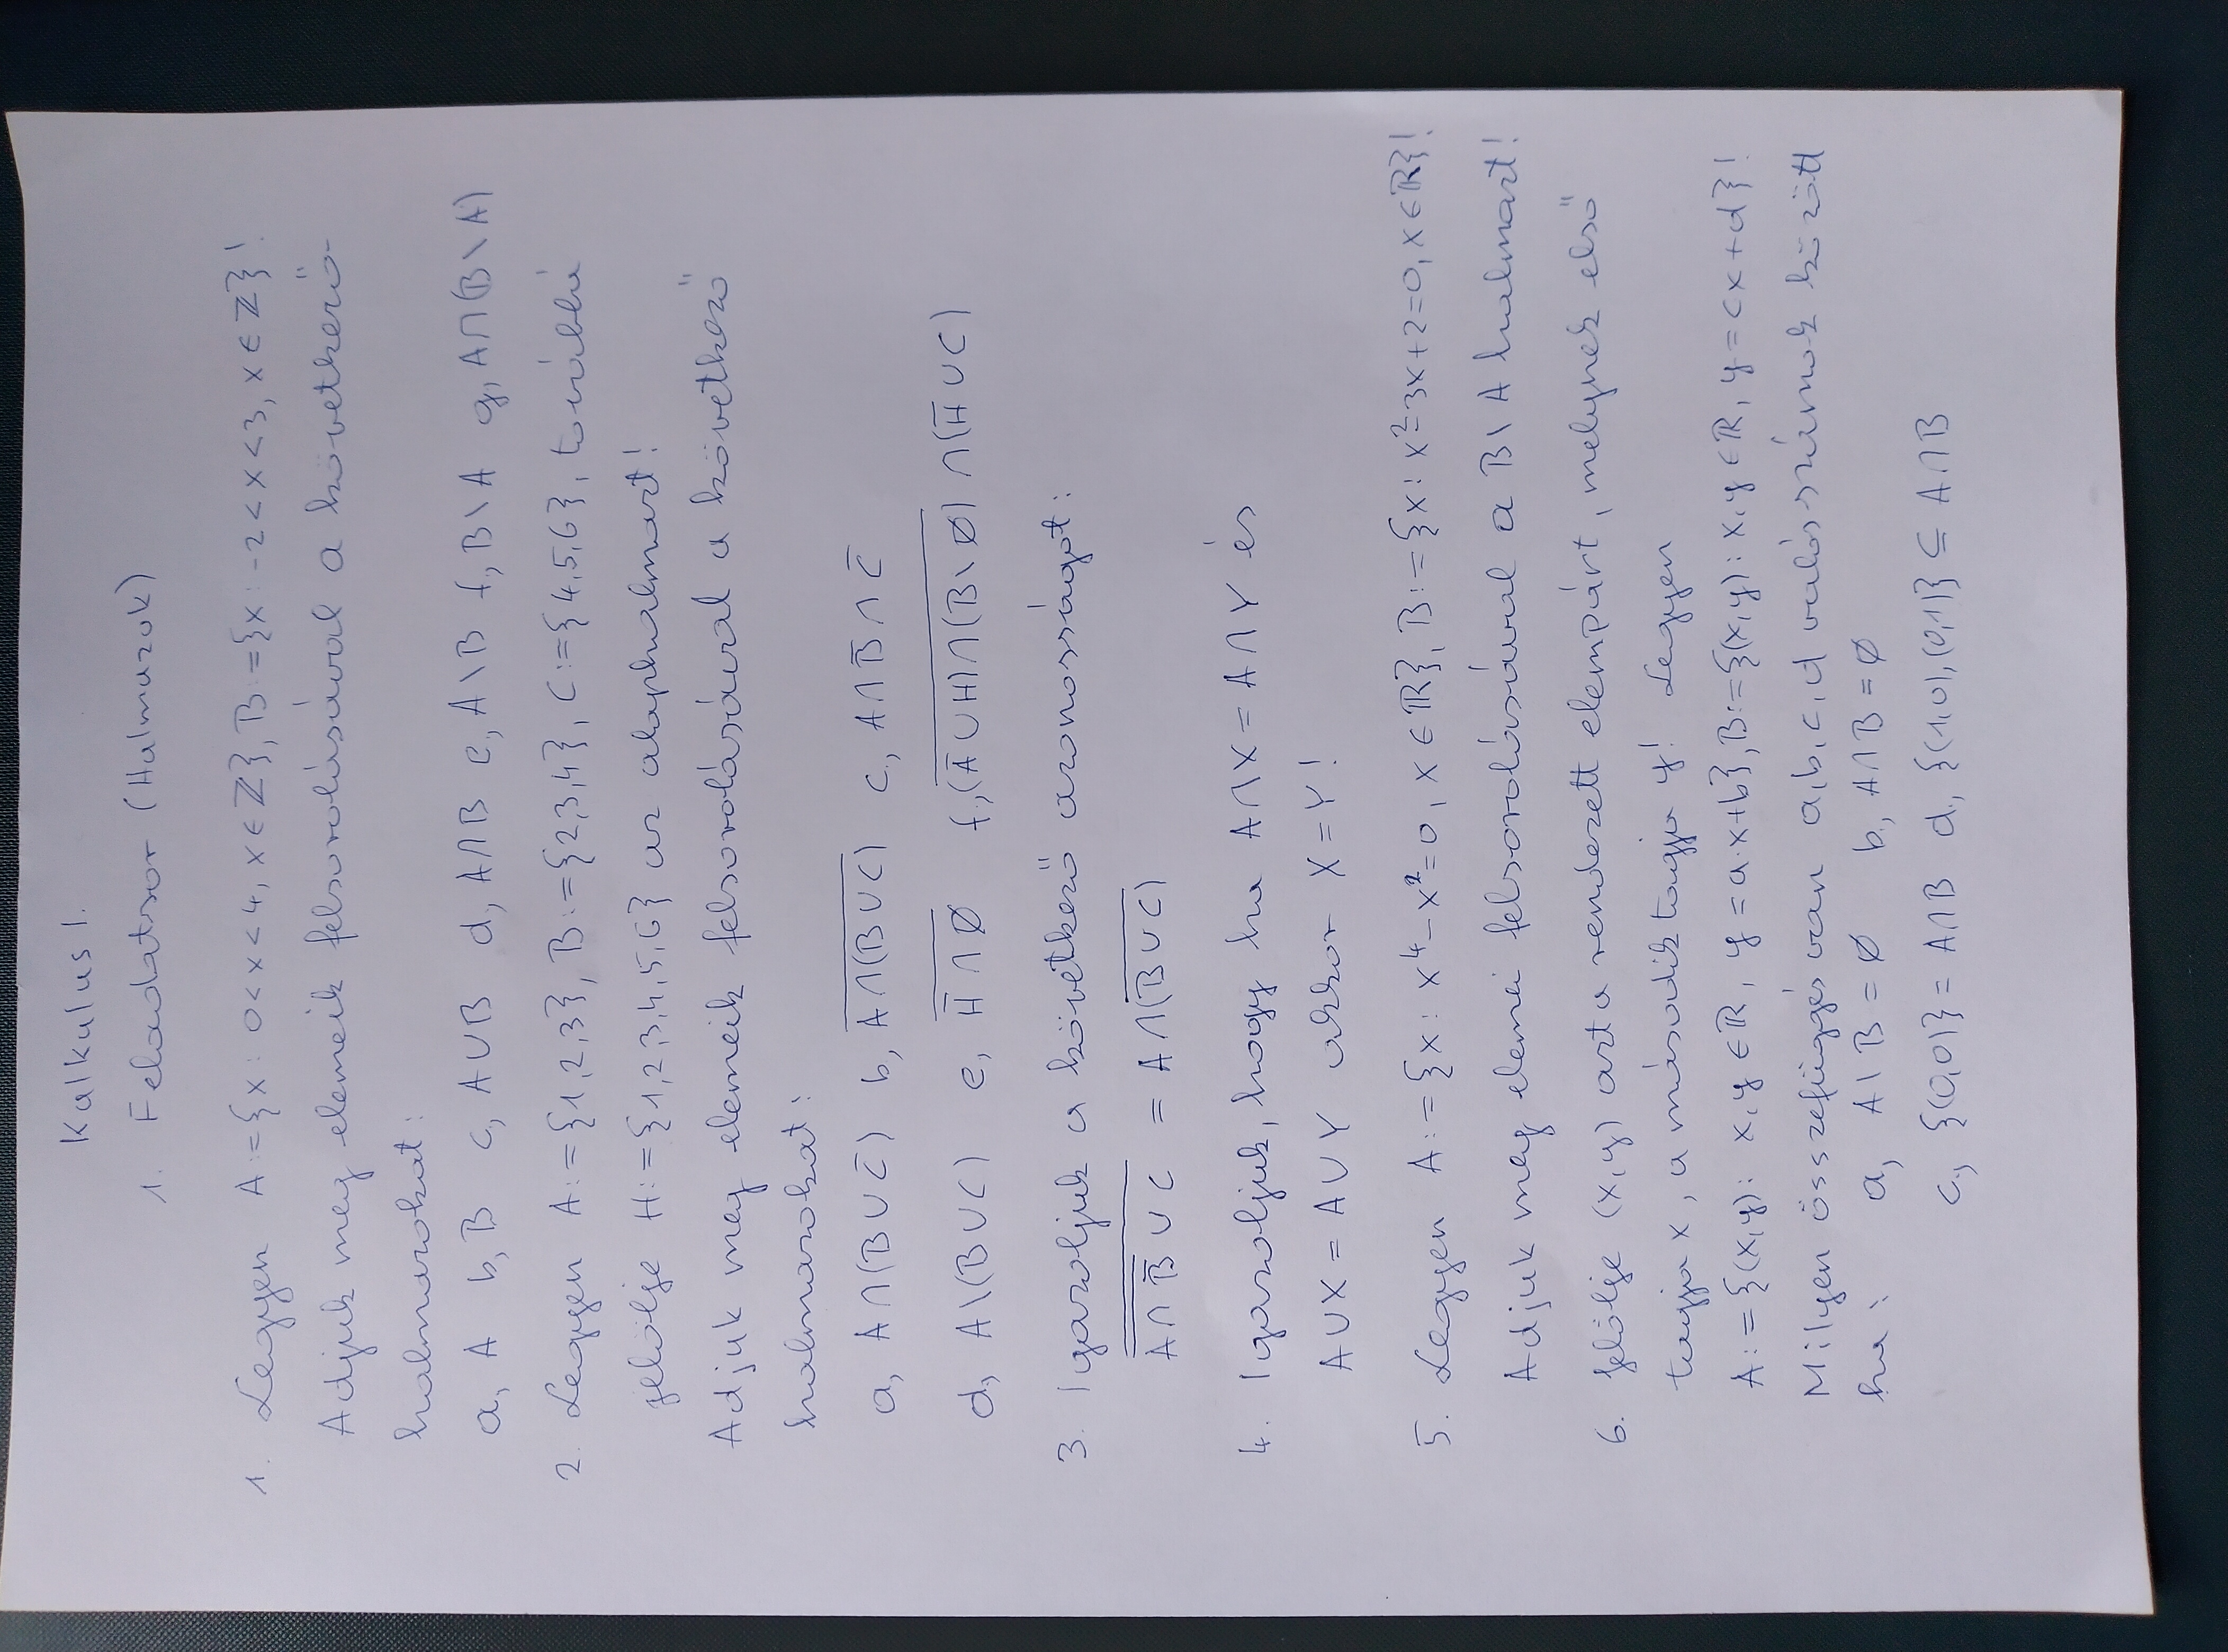 Kalkulus I.
1. Feladatsor (Halmazok)
1. Legyen A:={x: 0<x<4, x∈ℤ}, B:={x: -2<x<3, x∈ℤ}!
Adjuk meg elemeik felsorolásával a következő
halmazokat:
a, A b, B c, A∪B d, A∩B e, A\B f, B\A g, A∩(B\A)
2. Legyen A:={1,2,3}, B:={2,3,4}, C:={4,5,6}, továbbá
jelölje H:={1,2,3,4,5,6} az alaphalmazt!
Adjuk meg elemeik felsorolásával a következő
halmazokat:
a, A∩(B∪C̅) b, \overline{A∩(B∪C)} c., A∩B̅∩C̅
d, A\(B∪C) e, \overline{H̅∩∅} f, \overline{(A̅∪H)∩(B\∅)}∩(H̅∪C)
3. Igazoljuk a következő azonosságot:
\overline{\overline{\overline{A∩B̅}}∪C} = A∩(\overline{B∪C})
4. Igazoljuk, hogy ha A∩X = A∩Y és
A∪X = A∪Y akkor X=Y!
5. Legyen A:={x: x⁴-x²=0, x∈ℝ}, B:={x: x²-3x+2=0, x∈ℝ}!
Adjuk meg elemei felsorolásával a B\A halmazt!
6. Jelölje (x,y) azt a rendezett elempárt, melynek első
tagja x, a második tagja y! Legyen
A:={(x,y): x,y∈ℝ, y=a·x+b}, B:={(x,y): x,y∈ℝ, y=cx+d}!
Milyen összefüggés van a,b,c,d valós számok között
ha: a, A\B=∅ b., A∩B=∅
c., {(0,0)}=A∩B d., {(1,0),(0,1)}⊆A∩B